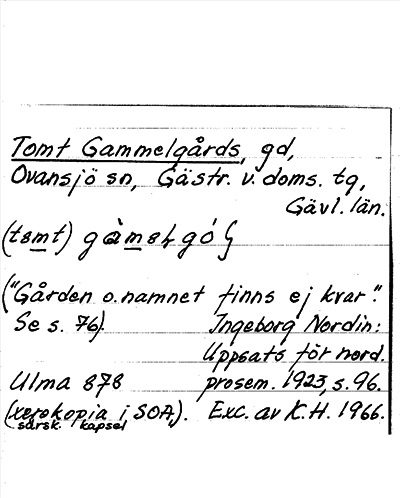 Tomt Gammelgårds, gd,
Ovansjö sn, Gästr. v. doms. tg,
Gävl. län.
("Gården o. namnet finns ej kvar."
Se s. 76). Ingeborg Nordin:
Uppsats för nord.
Ulma 878 prosem. 1923, s. 96.
(xerokopia i SOA,). Exc. av K.H. 1966.
särsk. kapsel